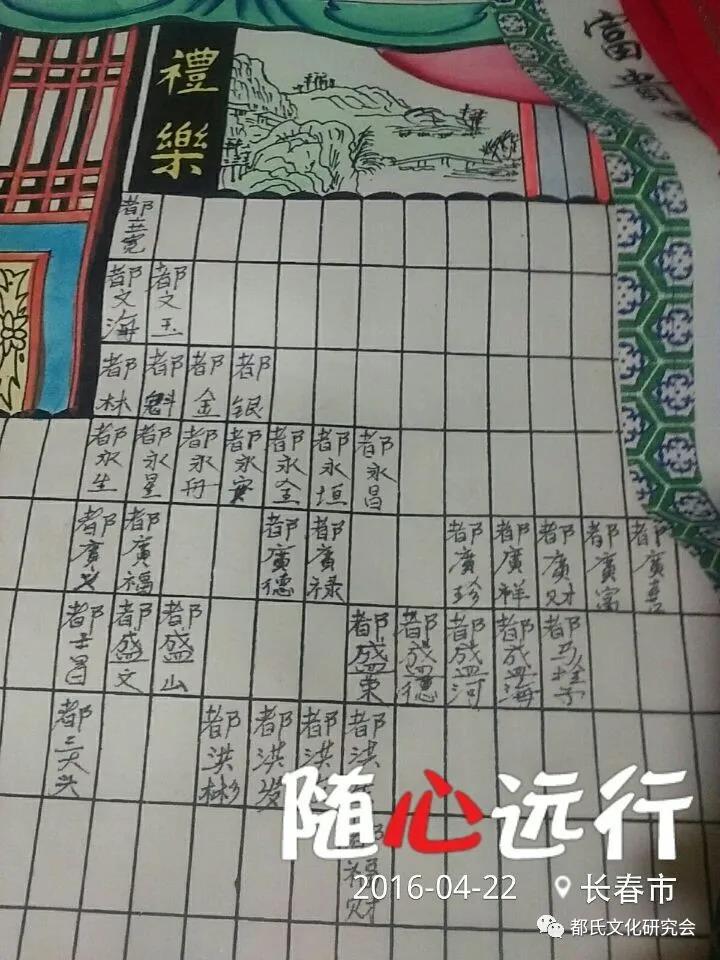 富貴
禮樂
都文海 都文玉
都林 都魁 都金 都銀
都永生 都永星 都永舟 都永寳 都永金 都永垣 都永昌
都廣義 都廣福 都廣德 都廣禄 都廣珍 都廣祥 都廣财 都廣富 都廣喜
都士昌 都盛文 都盛山 都盛東 都盛德 都盛河 都盛海
都三大头 都洪彬 都洪发 都洪 都洪
福财
随心远行
2016-04-22 长春市
都氏文化研究会